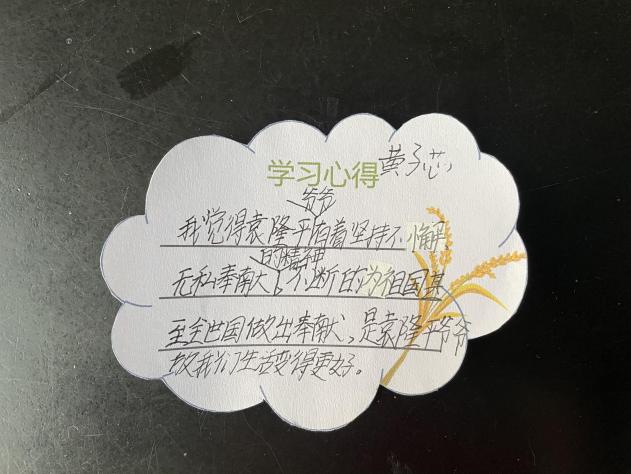 学习心得 黄子芯
爷爷
我觉得袁隆平有着坚持不懈
的精神
无私奉南大。不断的为祖国甚
至全世国做出奉献，是袁隆平爷爷
放我们生活变得更好。